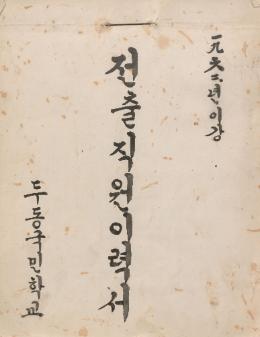 一九六二년이강
전출직원이력서
두동국민학교